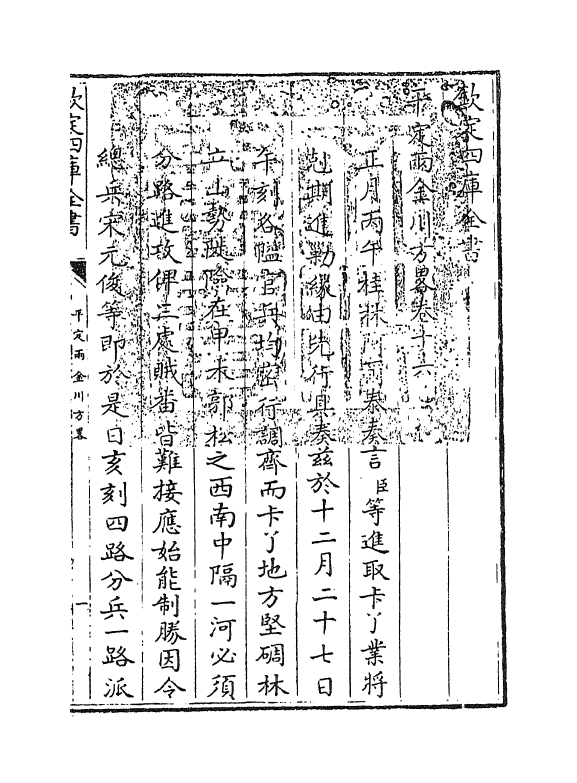 欽定四庫全書
平定兩金川方畧卷十六
正月丙午桂林阿爾泰奏言臣等進取卡丫業將
剋期進勦緣由先行具奏茲於十二月二十七日
午刻各隘官兵均密行調齊而卡丫地方堅碉林
立山勢陡險在申未郭松之西南中隔一河必須
分路進攻俾三處賊番皆難接應始能制勝因令
總兵宋元俊等即於是日亥刻四路分兵一路派
欽定四庫全書
平定兩金川方畧
一